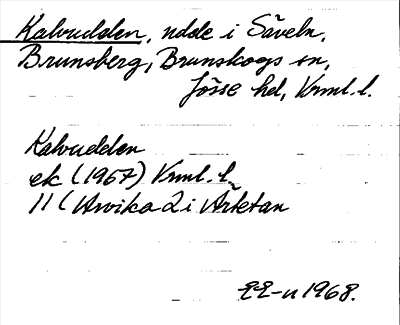 Kalvudden, udde i Säveln,
Brunsberg, Brunskogs sn,
Jösse hd, Vrml. l.
Kalvudden
ek (1967) Vrml. l.
11 ( Arvika 2 i Ärtetan
1968.